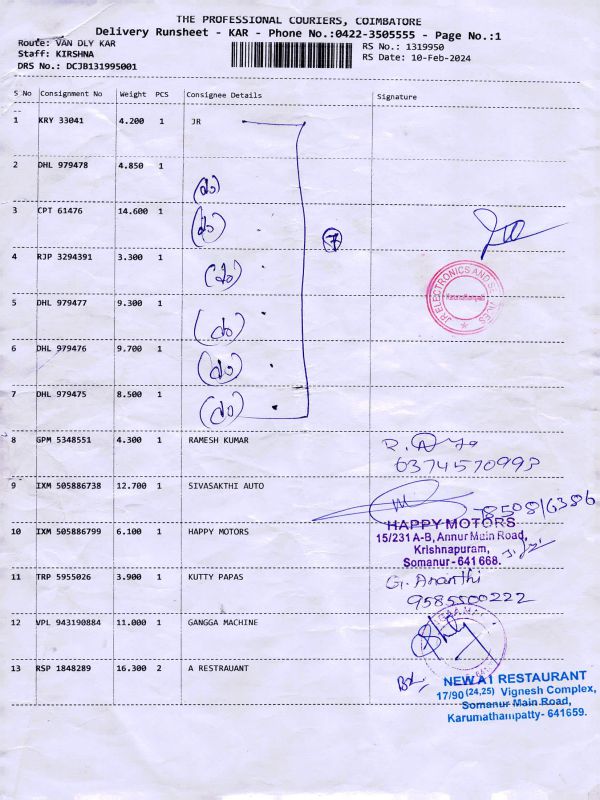 THE PROFESSIONAL COURIERS, COIMBATORE
Delivery Runsheet - KAR - Phone No.:0422-3505555 - Page No.:1
Route: VAN DLY KAR RS No.: 1319950
Staff: KIRSHNA RS Date: 10-Feb-2024
DRS No.: DCJB131995001
S No Consignment No Weight PCS Consignee Details Signature
1 KRY 33041 4.200 1 JR
2 DHL 979478 4.850 1 (do)
3 CPT 61476 14.600 1 (do)
7
4 RJP 3294391 3.300 1 (do)
JR ELECTRONICS AND SERVICES
5 DHL 979477 9.300 1 (do)
6 DHL 979476 9.700 1 (do)
7 DHL 979475 8.500 1 (do)
8 GPM 5348551 4.300 1 RAMESH KUMAR
6374570993
9 IXM 505886738 12.700 1 SIVASAKTHI AUTO
10 IXM 505886799 6.100 1 HAPPY MOTORS
HAPPY MOTORS
15/231 A-B, Annur Main Road,
Krishnapuram,
Somanur - 641 668.
11 TRP 5955026 3.900 1 KUTTY PAPAS
G. Ananthi
9585500222
12 VPL 943190884 11.000 1 GANGGA MACHINE
13 RSP 1848289 16.300 2 A RESTRAUANT
NEW A1 RESTAURANT
17/90 (24,25) Vignesh Complex,
Somanur Main Road,
Karumathampatty- 641659.